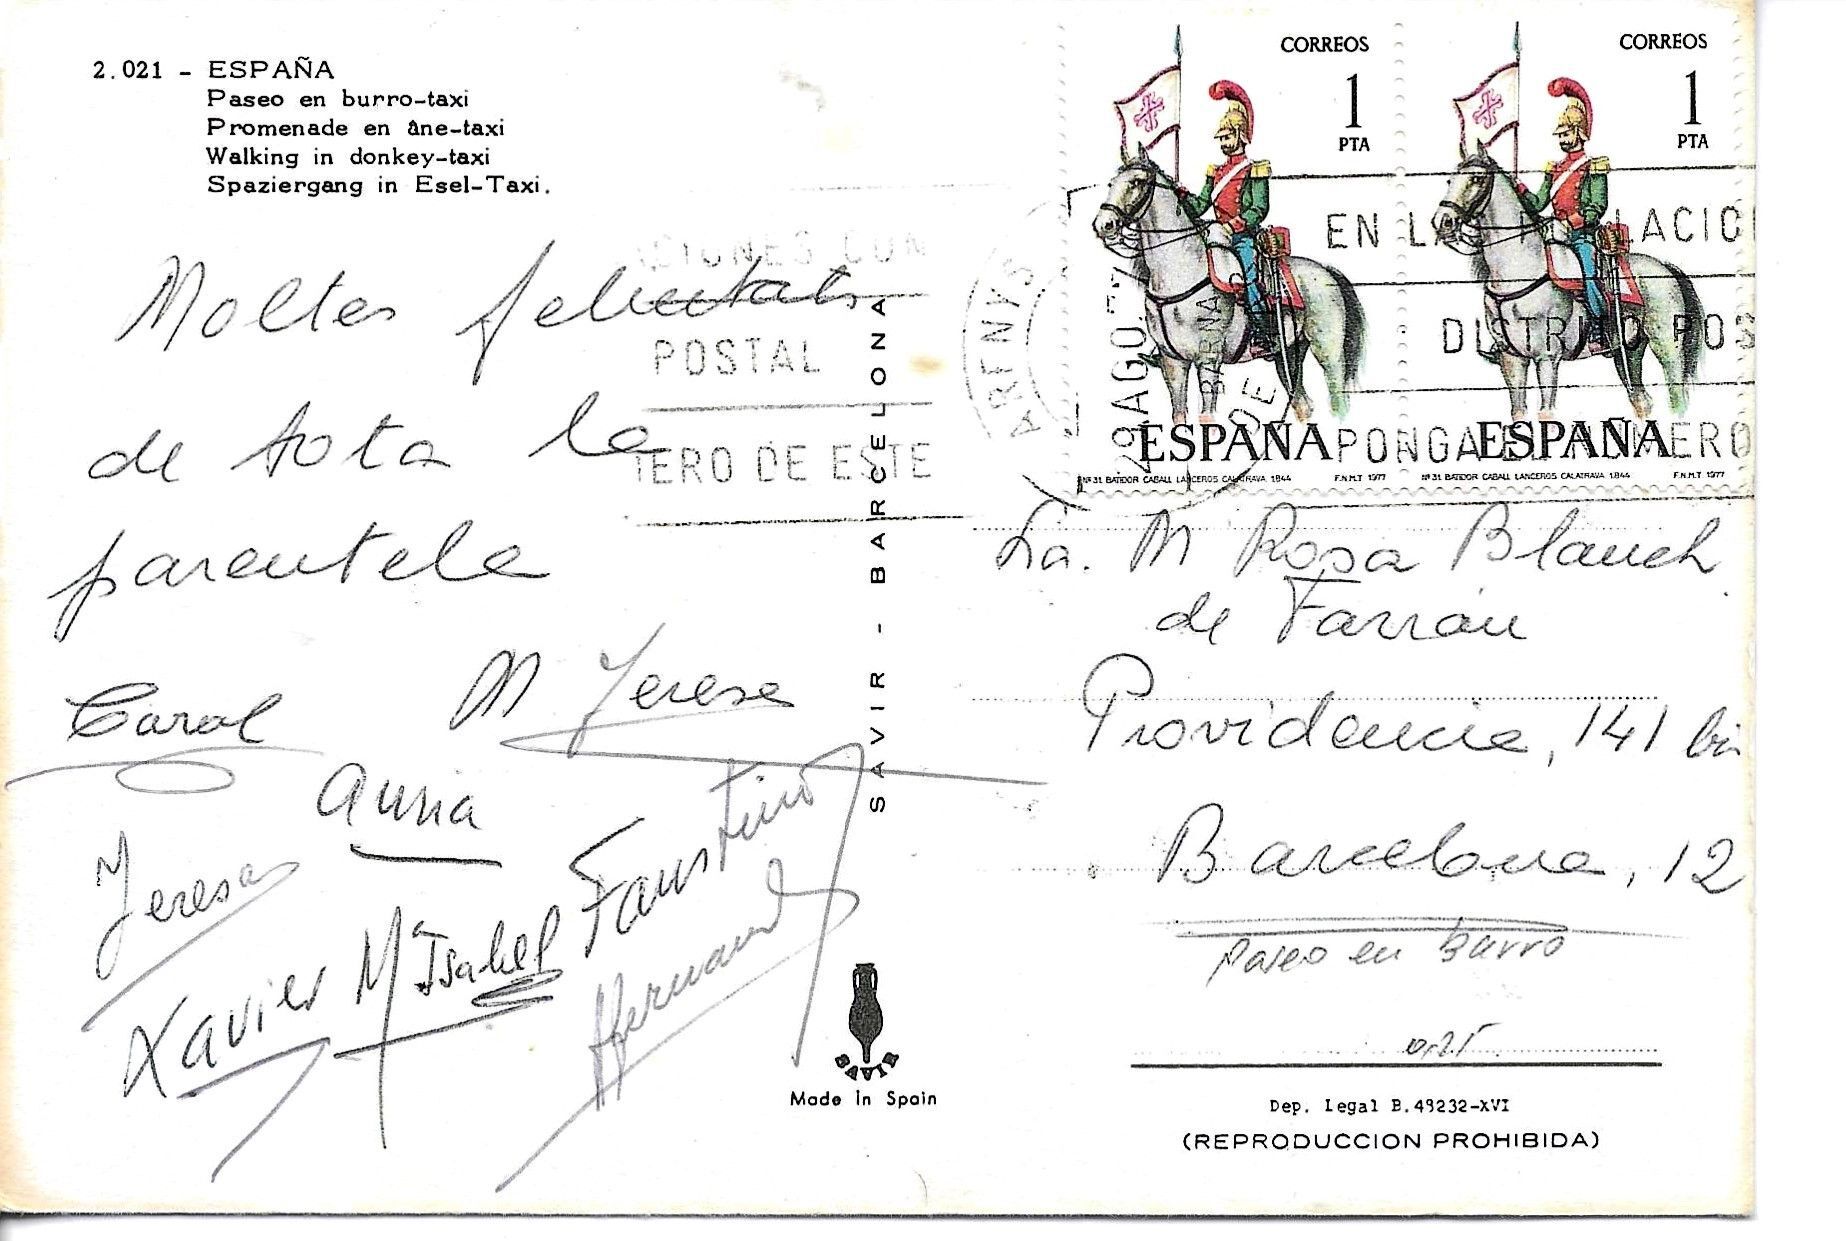 2.021 - ESPAÑA
Paseo en burro-taxi
Promenade en âne-taxi
Walking in donkey-taxi
Spaziergang in Esel-Taxi.
Moltes felicitats
de tota la
parentela
Carol M Teresa
Anna
Teresa
Xavier Mª Isabel Faustino
Hernand
SAVIR - BARCELONA
SAVIR
Made in Spain
CORREOS
1
PTA
ESPAÑA
Nº 31 BATIDOR CABALL LANCEROS CALATRAVA 1844 F.N.M.T 1977
CORREOS
1
PTA
ESPAÑA
Nº 31 BATIDOR CABALL LANCEROS CALATRAVA 1844 F.N.M.T 1977
ARENYS DE
29 AGO.77
BARNA
EN LA
LACIO
DISTRITO POS
PONGA
NUMERO
CIONES CON
POSTAL
ERO DE ESTE
Sa. M Rosa Blanch
de Farrán
Providencia, 141 bis
Barcelona, 12
Paseo en burro
Dep. Legal B.49232-XVI
(REPRODUCCION PROHIBIDA)